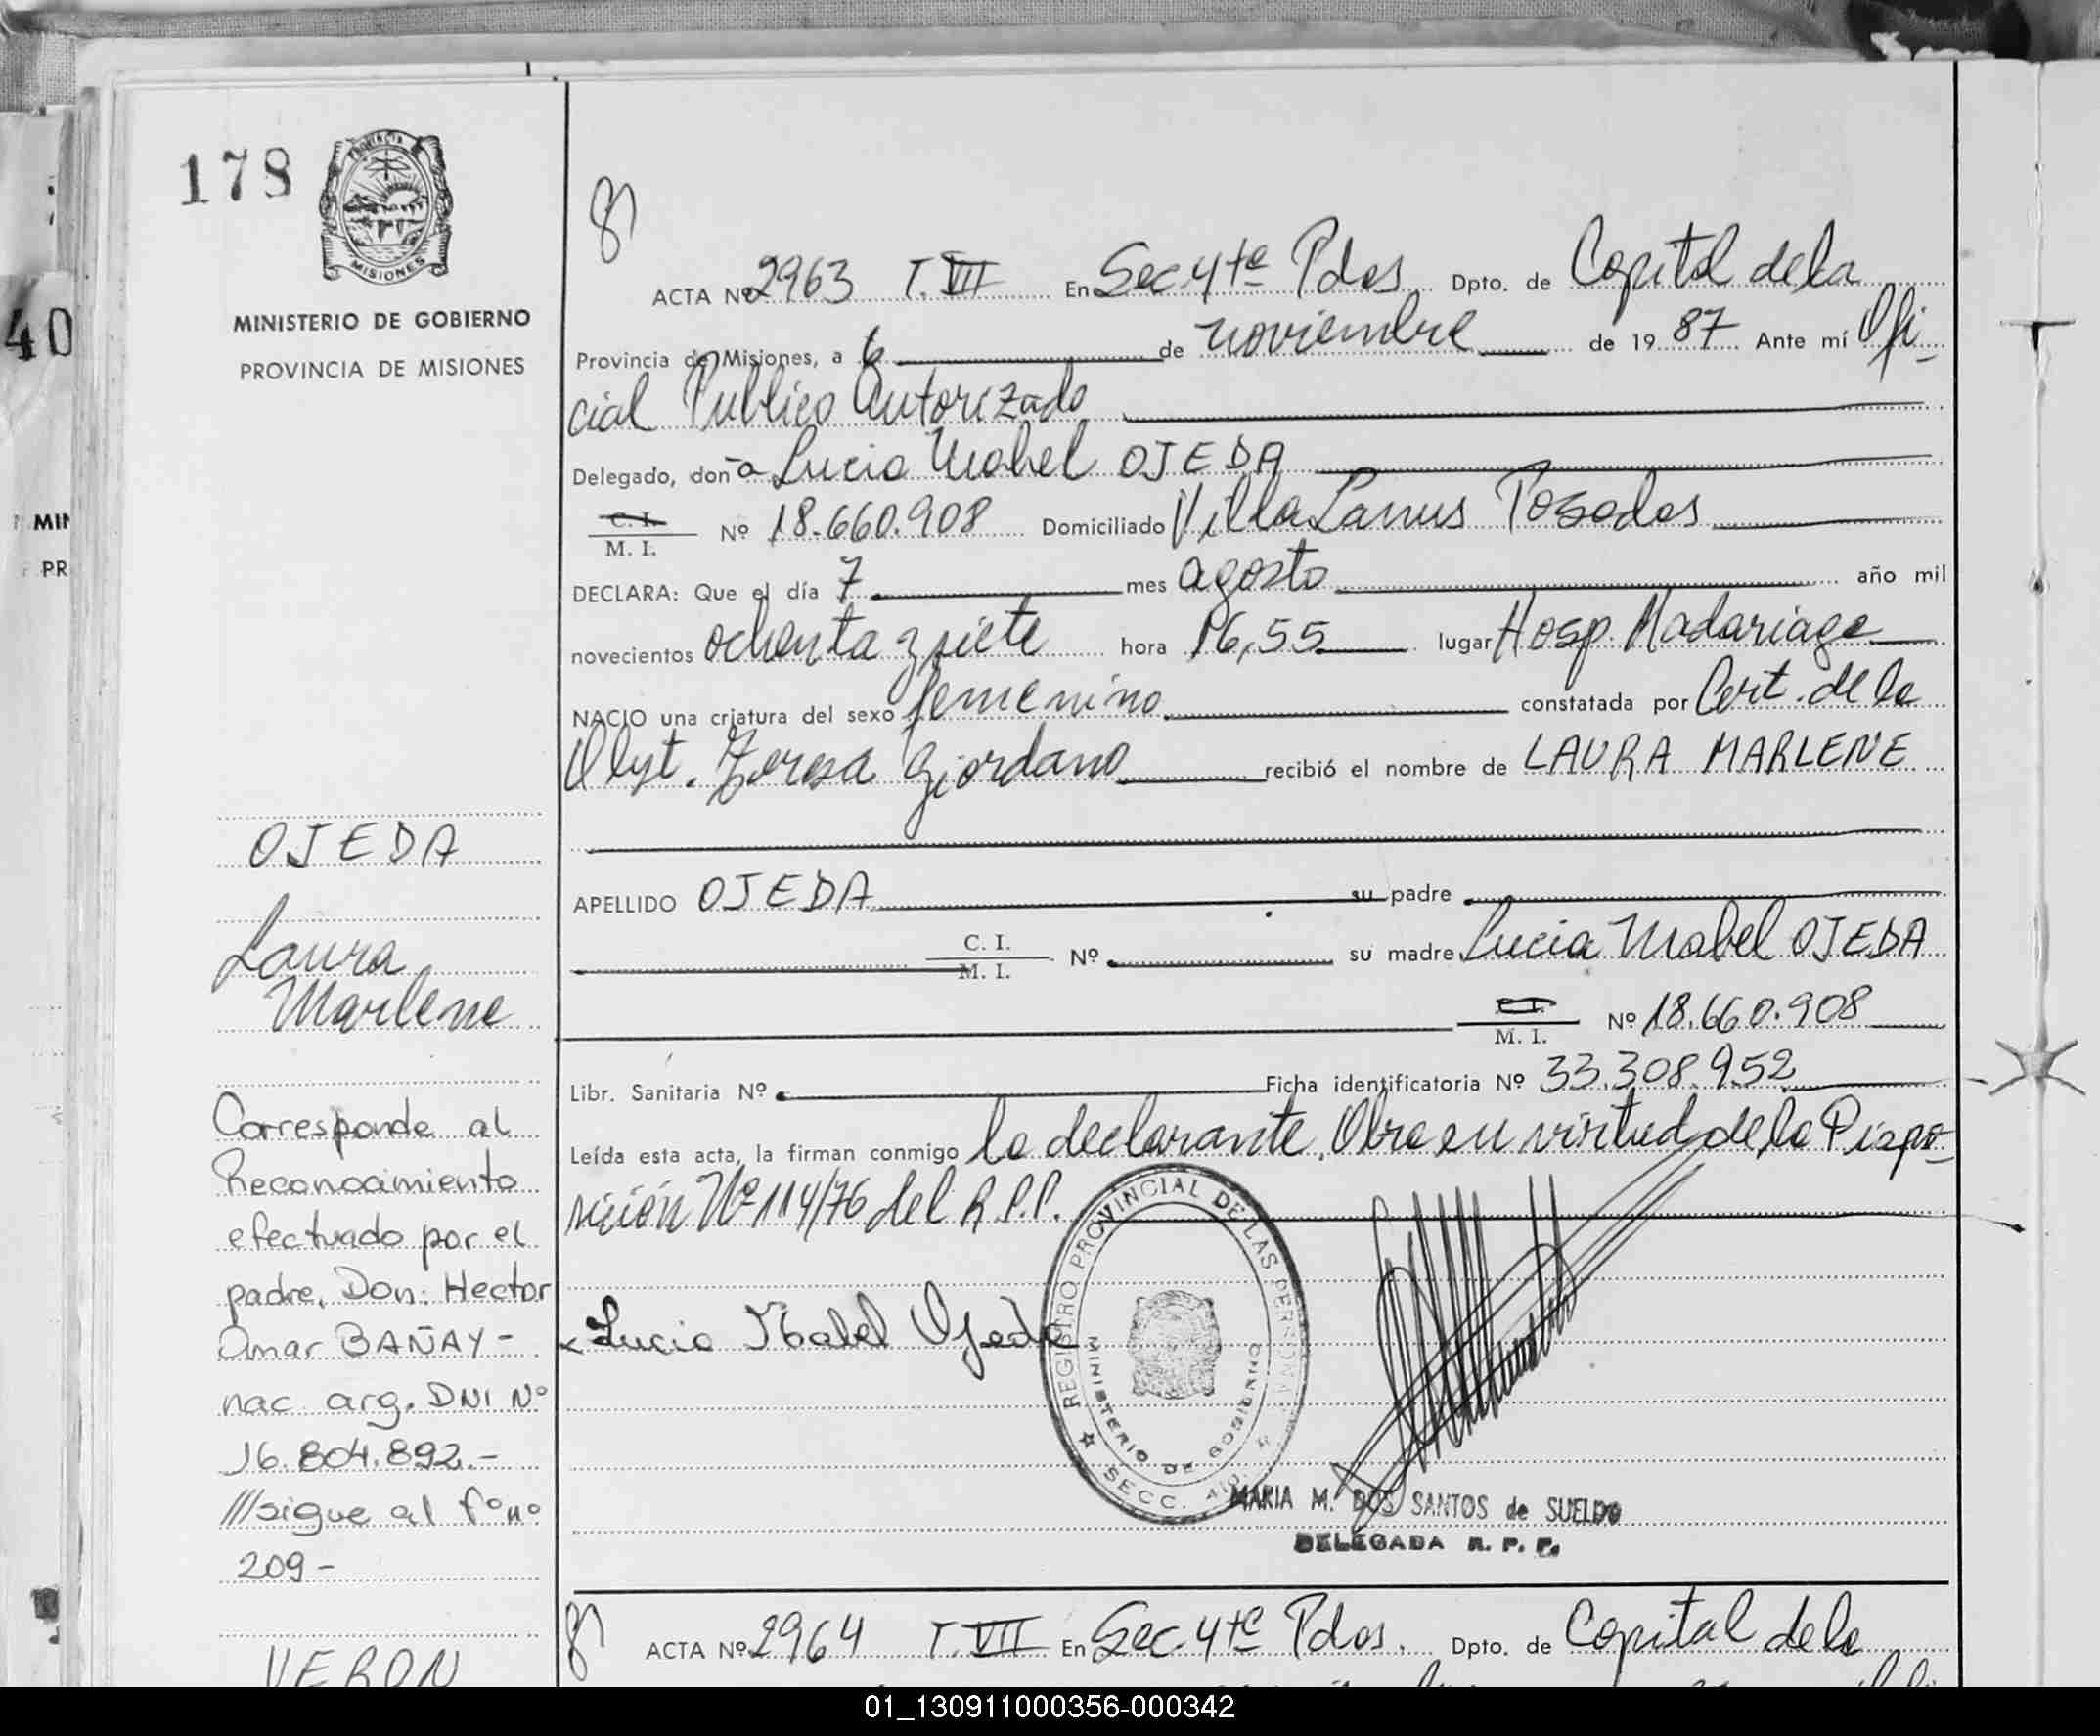 178
PROVINCIA
MISIONES
MINISTERIO DE GOBIERNO
PROVINCIA DE MISIONES
40
MIN
PR
87
ACTA Nº 2963 T. VII En Sec. 4ta Pdas. Dpto. de Capital de la
Provincia de Misiones, a 6 de noviembre de 1987 Ante mí Ofi-
cial Público Autorizado
Delegado, don-a Lucia Mabel OJEDA
C. I.
M. I. Nº 18.660.908 Domiciliado Villa Lanus Posadas
DECLARA: Que el día 7 mes agosto año mil
novecientos ochenta y siete hora 16,55 lugar Hosp. Madariaga
NACIO una criatura del sexo femenino constatada por Cert. de la
Obst. Teresa Giordano recibió el nombre de LAURA MARLENE
APELLIDO OJEDA su padre
C. I.
M. I. Nº su madre Lucia Mabel OJEDA
C. I.
M. I. Nº 18.660.908
Libr. Sanitaria Nº Ficha identificatoria Nº 33.308.952
Leída esta acta, la firman conmigo la declarante. Obra en virtud de la Dispo-
sición Nº 114/76 del R.P.P.
Lucia Mabel Ojeda
REGISTRO PROVINCIAL DE LAS PERSONAS
MINISTERIO DE GOBIERNO
SECC. 4ta
MARIA M. DOS SANTOS de SUELDO
DELEGADA R. P. P.
OJEDA
Laura
Marlene
Corresponde al
Reconocimiento
efectuado por el
padre, Don: Hector
Omar BAÑAY -
nac. arg. DNI Nº
16.804.892.-
///sigue al fº nº
209 -
87
ACTA Nº 2964 T. VII En Sec. 4ta Pdas. Dpto. de Capital de la
VERON
01_130911000356-000342